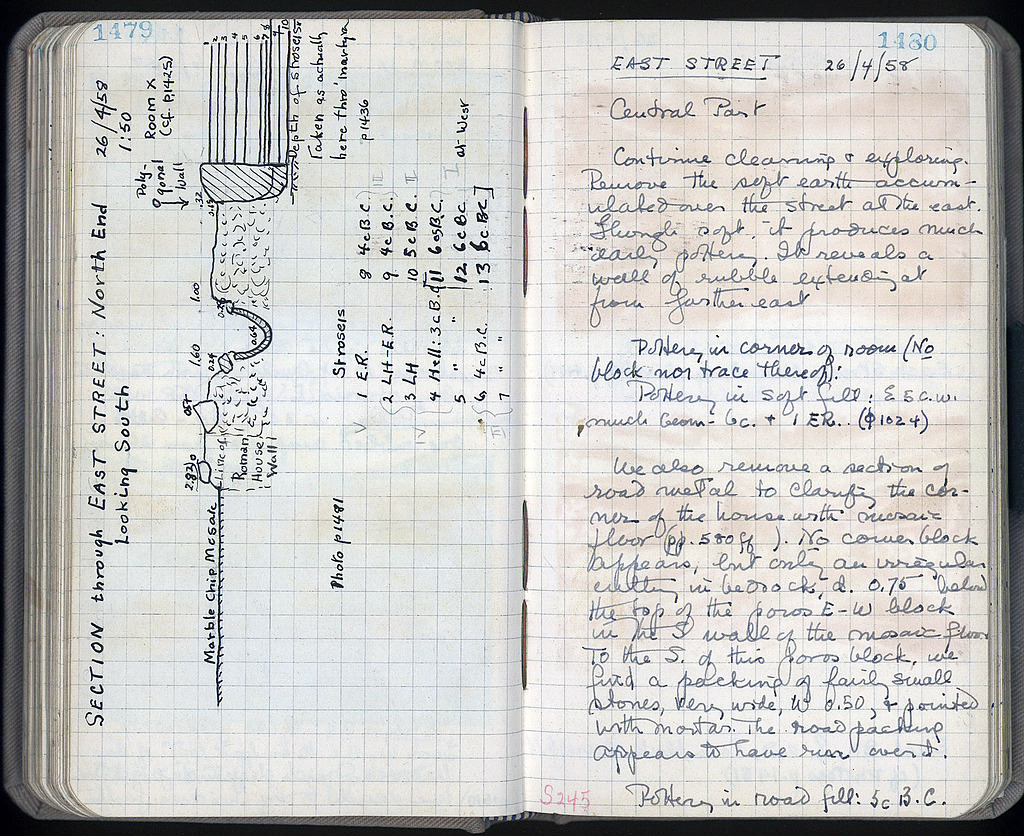 1479
SECTION through EAST STREET: North End 26/4/58
Looking South 1:50
Poly-
gonal
Wall
Room X
(cf. p.1425)
1 2 3 4 5 6 7 8 9 10
Depth of stroseis
Taken as actually
here thro martyra
p1436
2.82
1.60
1.00
.32
0.64
Line of
Roman
House
Wall
Marble Chip Mosaic
Photo p1481
Stroseis
1 E.R.
2 LH-E.R.
3 LH
4 Hell: 3c B.C.
5 " "
6 4c B.C.
7 " "
8 4c B.C.
9 4c B.C.
10 5c B.C.
11 6c B.C.
12 6c BC
13 6c BC
at West
V
IV
III
III
II
I
1480
EAST STREET 26/4/58
Central Part
Continue cleaning & exploring.
Remove the soft earth accum-
ulated over the street at the east.
Though soft, it produces much
early pottery. It reveals a
wall of rubble extending
from farther east
Pottery in corner of room (No
block nor trace thereof):
Pottery in soft fill: 5c.
much 6c. + 1 ER.. (φ1024)
We also remove a section of
road metal to clarify the cor-
ner of the house with mosaic
floor (pp. 580ff ). No corner block
appears, but only an irregular
cutting in bedrock, d. 0.75 below
the top of the poros E-W block
in the S wall of the mosaic floor
To the S. of this poros block, we
find a packing of fairly small
stones, very wide, W 0.50, & pointed
with mortar. The road packing
appears to have run over it.
Pottery in road fill: 5c B.C.
S245